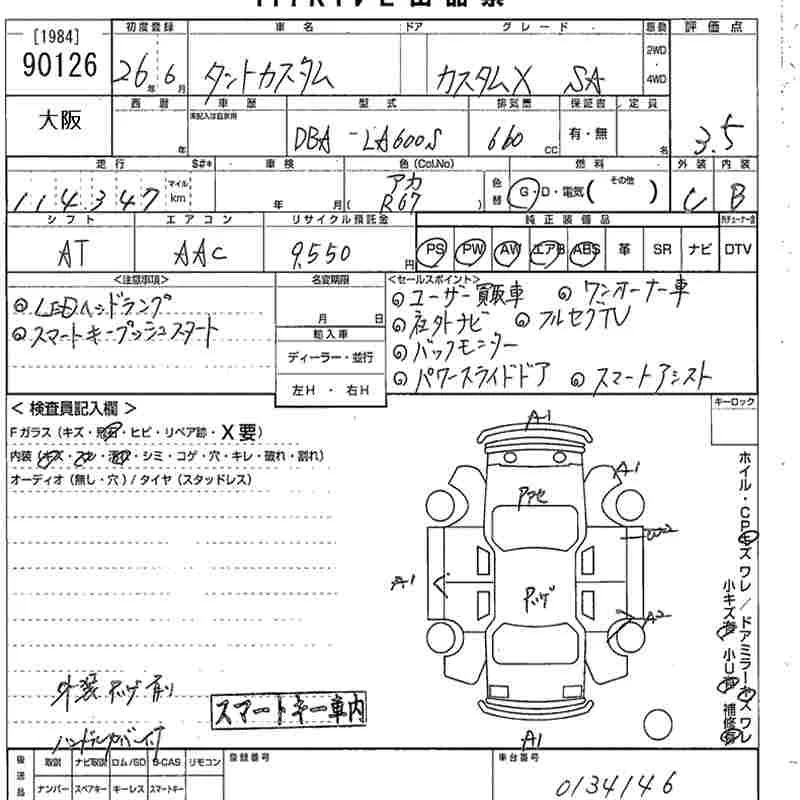 [1984]
90126
初度登録 車名 ドア グレード 駆動 評価点
26年6月 タントカスタム カスタムX SA 2WD・4WD
大阪
西暦 車歴 型式 排気量 保証書 定員
未記入は自家用
年 DBA-LA600S 660cc 有・無 名 3.5
走行 S#* 車検 色(Col.No) 燃料 外装 内装
114347 マイル km 年 月 ( アカ R67 ) 色替 G・D・電気( その他 ) C B
シフト エアコン リサイクル預託金 純正装備品
AT AAC 9,550円 PS PW AW エアB ABS 革 SR ナビ DTV
<注意事項> 名変期限 <セールスポイント>
◎LEDヘッドランプ ◎ユーザー買取車 ◎ワンオーナー車
◎スマートキープッシュスタート 月 日 ◎社外ナビ ◎フルセグTV
輸入車 ◎バックモニター
ディーラー・並行 ◎パワースライドドア ◎スマートアシスト
左H・右H
<検査員記入欄> キーロック
Fガラス(キズ・飛石・ヒビ・リペア跡・X要)
内装(キズ・・・シミ・コゲ・穴・キレ・破れ・割れ)
オーディオ(無し・穴)/タイヤ(スタッドレス)
A1
A1
アセ
W2
A1
A2
A1
ホイル・CPキズワレ/ドアミラーキズワレ
小キズ有 小U有 補修有
外装 有り
スマートキー車内
ハンドルカバー付
後送品 取説 ナビ取説 ロム/SD B-CAS リモコン 登録番号 車台番号
ナンバー スペアキー キーレス スマートキー 0134146